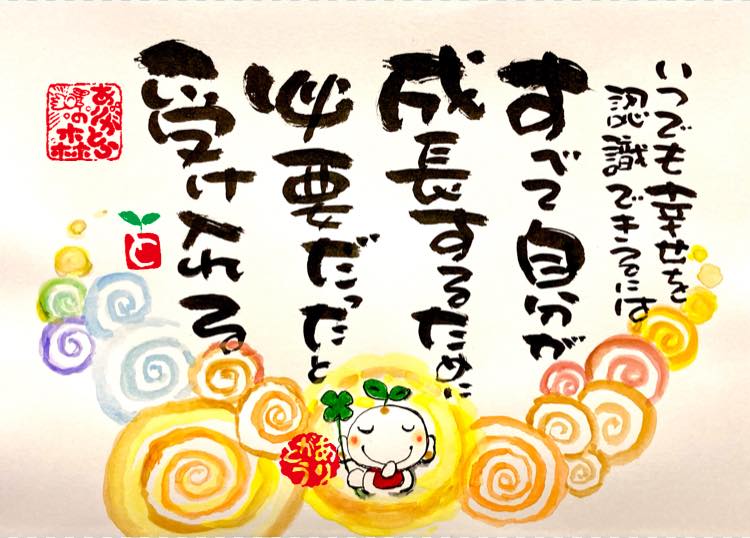 いつでも幸せを
認識できうるには
すべて自分が
成長するために
必要だったと
受け入れる。
ありがとう
の森
と
ありがとう